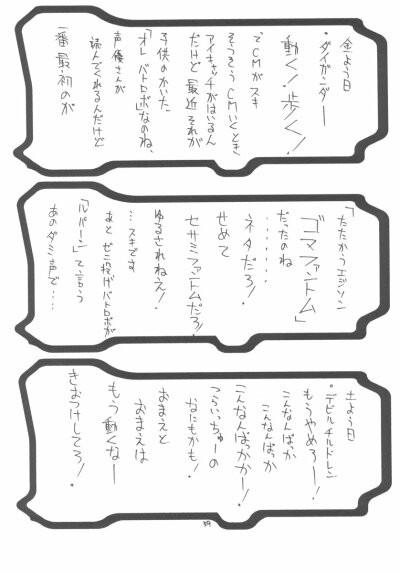 金よう日
・ダイガンダー
動く!歩く!
でCMがスキ
そうそうCMいくとき
アイキャッチがはいるん
だけど最近それが
子供のかいた
「オレバトロボ」なのね、
声優さんが
読んでくれるんだけど
一番最初のが
「たたかうエジソン
ゴマファントム」
だったのね
・・・・・・・・
ネタだろ!
せめて
セサミファントムだろ!
ゆるされねえ!
・・・スキです
あと ゼニ投げバトロボが
「ルパーン」て言う
あのダミ声で・・・・
土よう日
・デビルチルドレン
もうやめろー!
こんなんばっか
こんなんばっか
こんなんばっかかー!
つらいっちゅーの
なにもかも!
おまえと
おまえは
もう動くなー
きおつけしてろ!
39